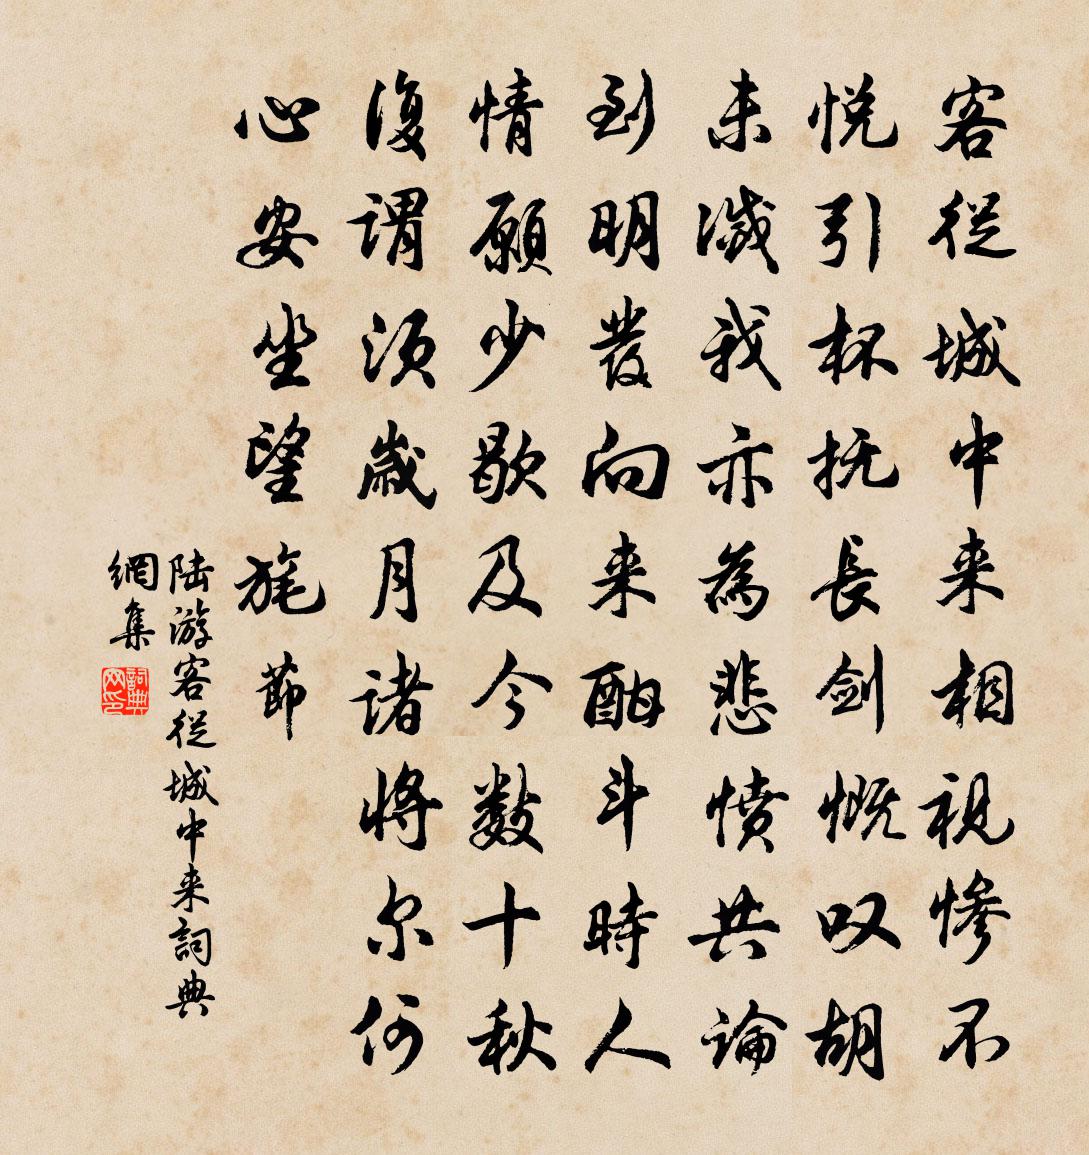 客從城中来相視慘不
悦引杯抚長剑慨叹胡
未滅我亦為悲憤共論
到明發向来酣斗時人
情願少歇及今數十秋
復謂須歲月諸將尔何
心安坐望旄節
陆游客從城中来詞典
網集
詞典
网印